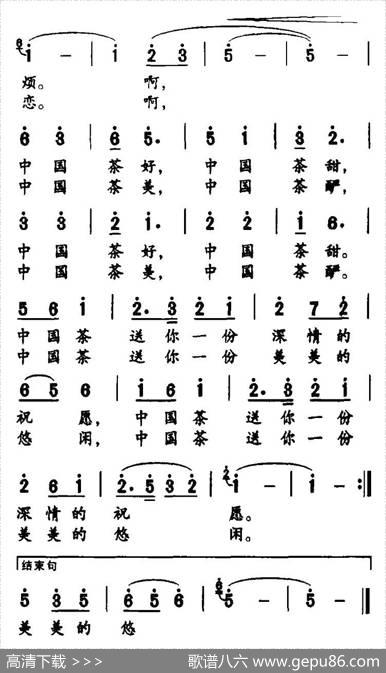 烦。 啊,
恋。 啊,
6 3 | 6 5. | 5 1 | 3 2. |
中 国 茶 好, 中 国 茶 甜,
中 国 茶 美, 中 国 茶 酽,
3 3 | 2 1. | 2 2 | 1 6. |
中 国 茶 好, 中 国 茶 甜。
中 国 茶 美, 中 国 茶 酽。
5 6 1 | 2. 3 2 1 | 2 7 2 |
中 国 茶 送 你 一 份 深 情 的
中 国 茶 送 你 一 份 美 美 的
6 5 6 | 1 6 1 | 2. 3 2 1 |
祝 愿, 中 国 茶 送 你 一 份
悠 闲, 中 国 茶 送 你 一 份
2 6 1 | 2. 5 3 2 | 2 1 - | 1 - :||
深 情 的 祝 愿。
美 美 的 悠 闲。
结束句
5 3 5 | 6 5 6 | 6 5 - | 5 - ||
美 美 的 悠
高清下载 >>> 歌谱八六 www.gepu86.com